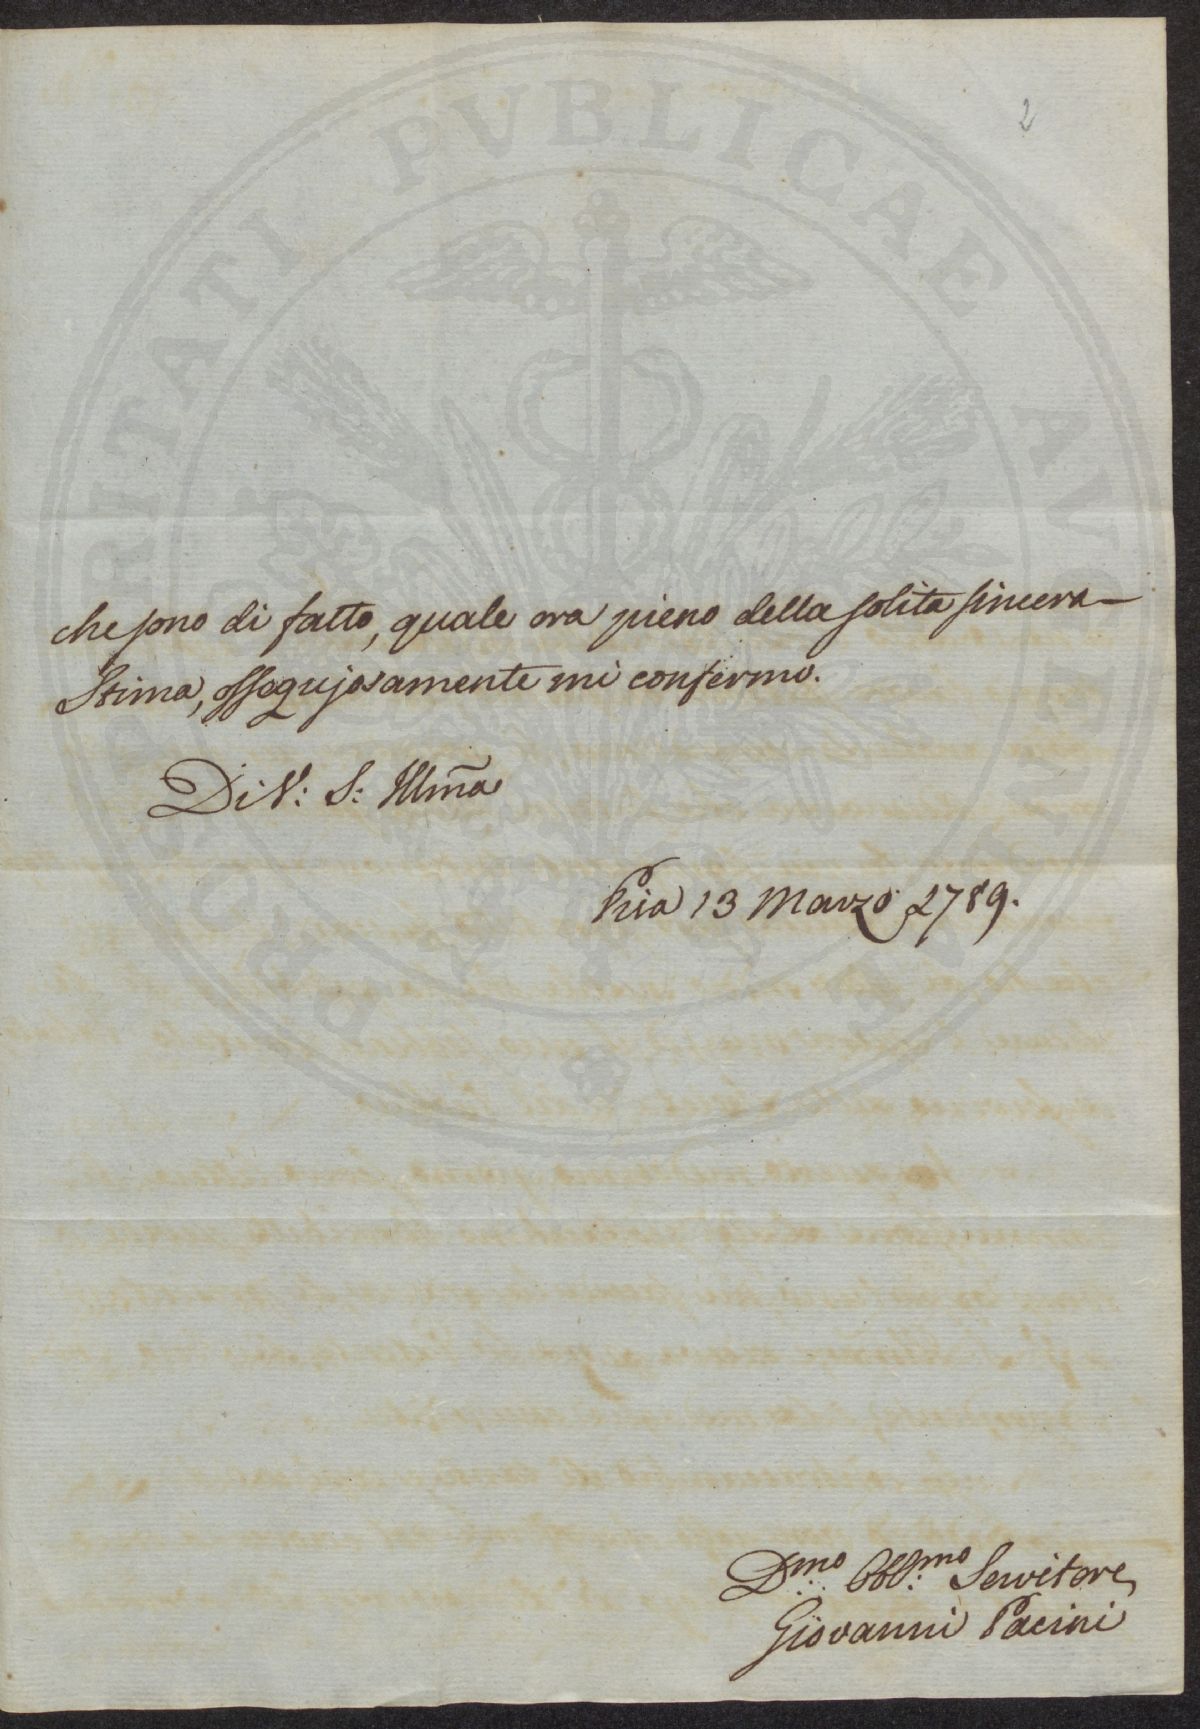 2
che sono di fatto, quale ora pieno della solita sincera
Stima, ossequiosamente mi confermo.
Di V: S: Illm̃a
Pria 13 Marzo 1789.
Dmo Obblmo Servitore
Giovanni Pacini
PROSPERITATI PVBLICAE AVGENDAE